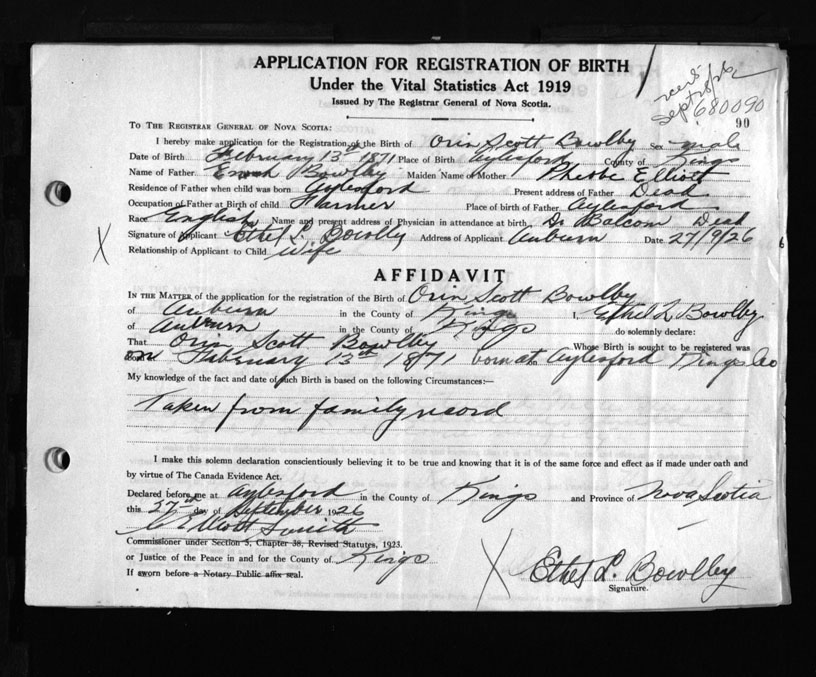 APPLICATION FOR REGISTRATION OF BIRTH
Under the Vital Statistics Act 1919
Issued by The Registrar General of Nova Scotia.
680090
90
To The Registrar General of Nova Scotia:
I hereby make application for the Registration of the Birth of Orin Scott Bowlby Sex male
Date of Birth February 13th 1871 Place of Birth Aylesford County of Kings
Name of Father Enoch Bowlby Maiden Name of Mother Phebe Elliott
Residence of Father when child was born Aylesford Present address of Father Dead
Occupation of Father at Birth of child Farmer Place of birth of Father Aylesford
Race English Name and present address of Physician in attendance at birth Dr Balcom Dead
Signature of Applicant Ethel L. Bowlby Address of Applicant Auburn Date 27/9/26
Relationship of Applicant to Child Wife
AFFIDAVIT
In the Matter of the application for the registration of the Birth of Orin Scott Bowlby
of Auburn in the County of Kings I, Ethel L Bowlby
of Auburn in the County of Kings do solemnly declare:
That Orin Scott Bowlby Whose Birth is sought to be registered was
on February 13th 1871 born at Aylesford Kings Co
My knowledge of the fact and date of such Birth is based on the following Circumstances:—
Taken from family record
I make this solemn declaration conscientiously believing it to be true and knowing that it is of the same force and effect as if made under oath and
by virtue of The Canada Evidence Act.
Declared before me at Aylesford in the County of Kings and Province of Nova Scotia
this 27th day of September 1926
Elliott Smith
Commissioner under Section 5, Chapter 38, Revised Statutes, 1923.
or Justice of the Peace in and for the County of Kings
If sworn before a Notary Public affix seal.
Ethel L. Bowlby
Signature.